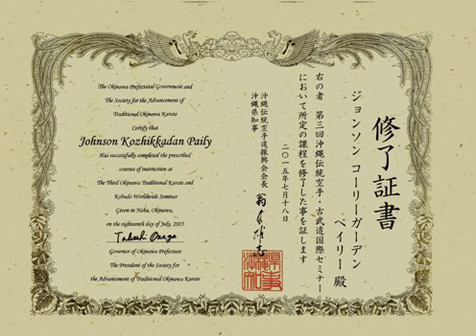 The Okinawa Prefectural Government and
The Society for the Advancement of
Traditional Okinawa Karate
Certify that
Johnson Kozhikkadan Paily
Has successfully completed the prescribed
courses of instruction at
The Third Okinawa Traditional Karate and
Kobudo Worldwide Seminar
Given in Naha, Okinawa,
on the eighteenth day of July, 2015
Governor of Okinawa Prefecture
The President of the Society for
the Advancement of Traditional Okinawa Karate
修了証書
ジョンソン コーリーガーデン
ペイリー 殿
右の者 第三回沖縄伝統空手・古武道国際セミナー
において所定の課程を修了した事を証します
二〇一五年七月十八日
沖縄伝統空手道振興会会長
沖縄県知事